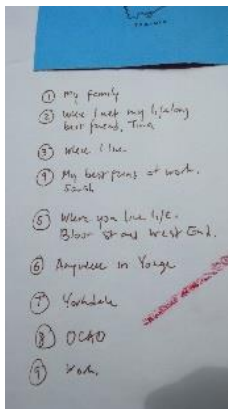 ① My family
② Where I met my lifelong
best friend, Tina
③ Where I live
④ My best friend at work.
Sarah
⑤ Where you live life.
Bloor St and West End.
⑥ Anywhere in Yonge
⑦ Yorkdale
⑧ OCAD
⑨ Work.